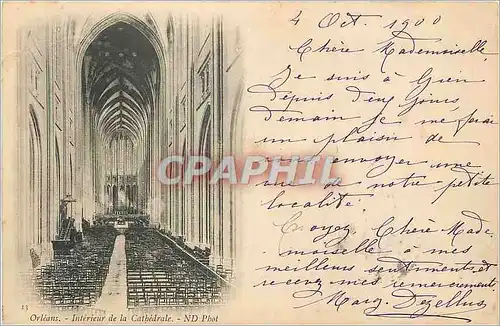 4 Oct. 1900
Chère Mademoiselle
Je suis à Gien
depuis deux jours
demain je me ferai
un plaisir de
vous envoyer une
vue de notre petite
localité.
Croyez Chère Made-
moiselle à mes
meilleurs sentiments et
recevez mes remerciements
Marg.
CPAPHIL.COM
13
Orléans. - Intérieur de la Cathédrale. - ND Phot